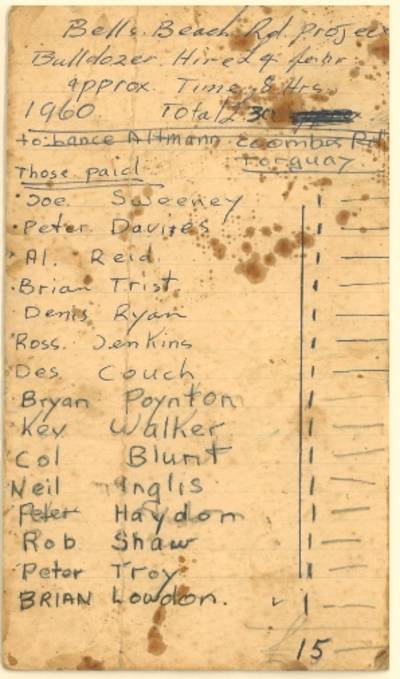 Bells. Beach Rd. Projec
Bulldozer. Hired 4 £
approx. Time. 8 Hrs.
1960 Total £ 30
to: Lance Altmann Coombes Rd
Torquay
Those paid
Joe. Sweeney 1
Peter Davies 1
Al. Reid. 1
Brian Trist 1
Denis Ryan 1
Ross. Jenkins 1
Des Couch 1
Bryan Poynton 1
Kev Walker 1
Col Blunt 1
Neil Inglis 1
Peter Haydon 1
Rob Shaw 1
Peter Troy 1
BRIAN Lowdon. ✓ 1
15